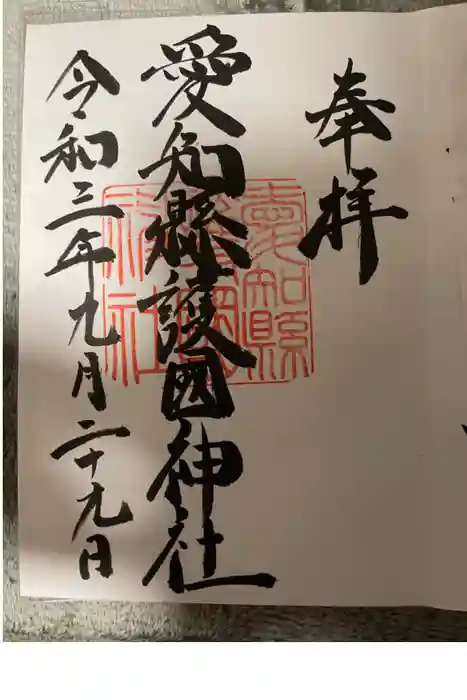 奉拝
愛知縣護國神社
愛知縣
護國
神社
令和三年九月二十九日